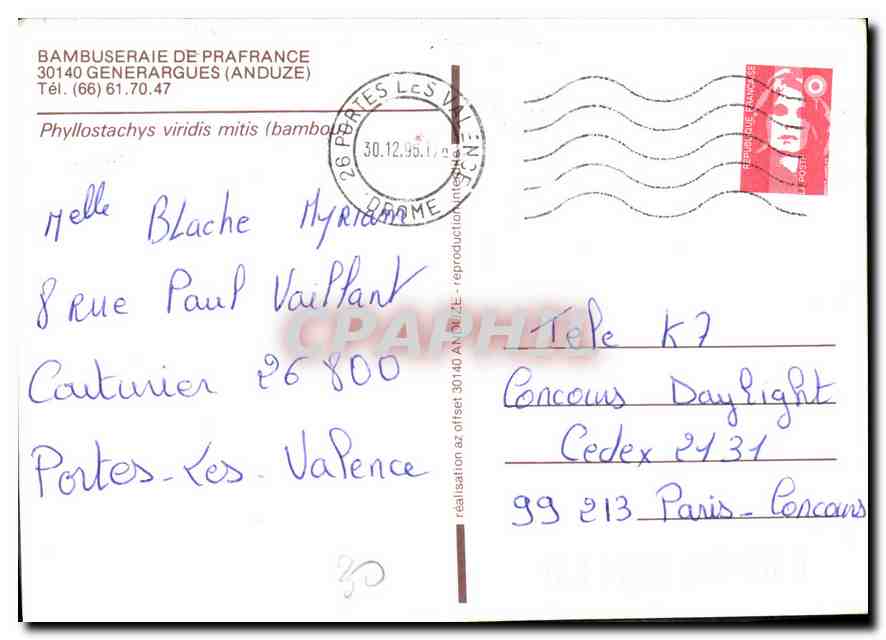 BAMBUSERAIE DE PRAFRANCE
30140 GENERARGUES (ANDUZE)
Tél. (66) 61.70.47
Phyllostachys viridis mitis
26 PORTES LES VALENCE
30.12.96
DROME
REPUBLIQUE FRANÇAISE
LA POSTE
Melle BLache Myriam
8 Rue Paul Vaillant
Couturier 26 800
Portes-Les-Valence
30
réalisation az offset 30140 ANDUZE - reproduction
CPAPHIL
Tele K7
Concours Daylight
Cedex 2131
99 213 Paris-Concours